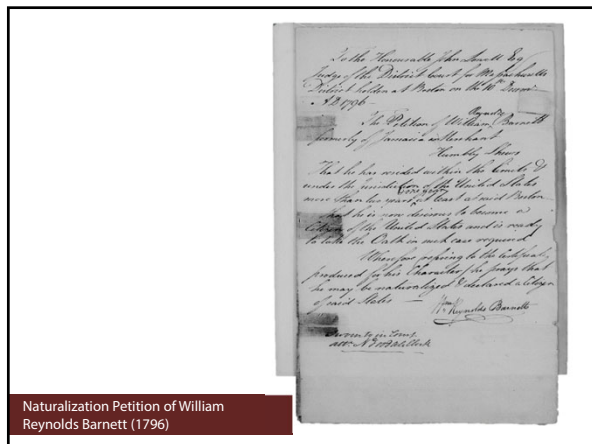 To the Honourable John Lowell Esq
Judge of the District Court for Massachusetts
District holden at Boston on the
AD 1796 -
Reynolds
The Petition of William Barnett
formerly of Jamaica Merchant
Humbly Shews
That he has resided within the Limits &
under the jurisdiction of the United States
more than two years at least at said Boston
that he is now desirous to become a
Citizen of the United States and is ready
to take the Oath in such case required
Wherefore refering to the Certificate
produced for his Character, he prays that
he may be naturalized & declared a Citizen
of said States -
Wm Reynolds Barnett
Sworn to in Court
Naturalization Petition of William
Reynolds Barnett (1796)